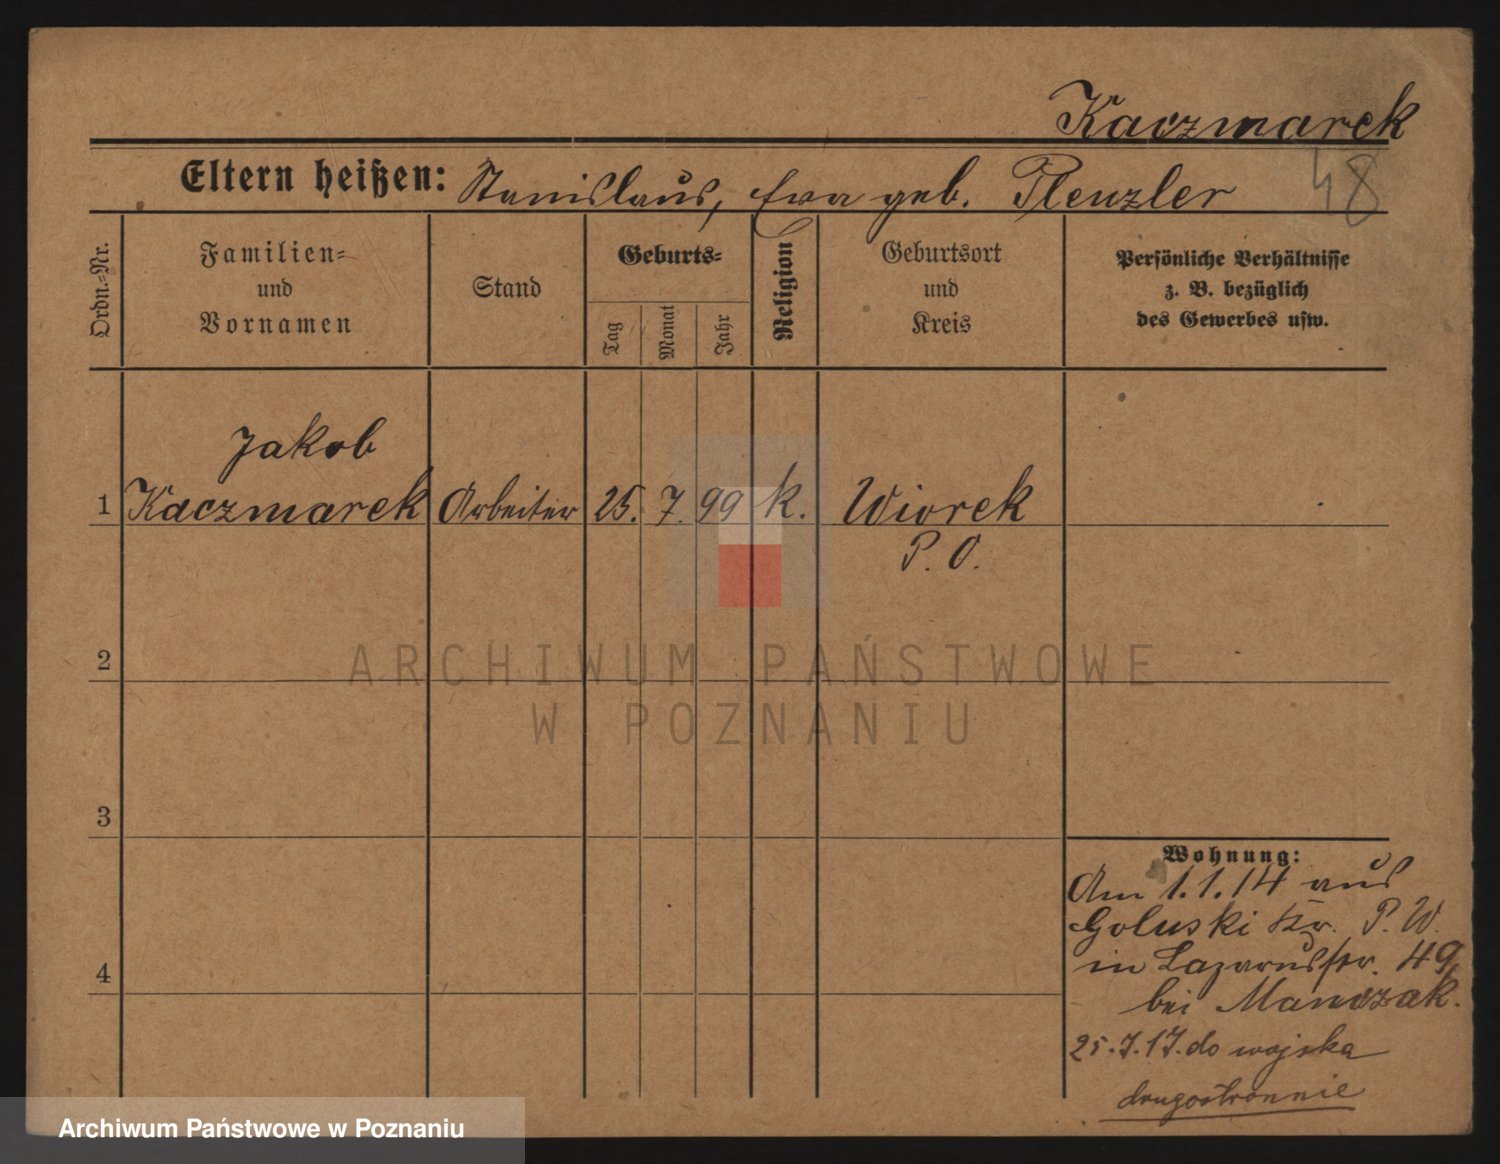 Kaczmarek
Eltern heißen: Stanislaus, Eva geb. Plenzler
48
Ordn.-Nr.
Familien-
und
Vornamen
Stand
Geburts-
Tag
Monat
Jahr
Religion
Geburtsort
und
Kreis
Persönliche Verhältnisse
z. B. bezüglich
des Gewerbes usw.
Jakob
1 Kaczmarek Arbeiter 25. 7. 99 k. Wiorek
P. O.
2
3
4
Wohnung:
Am 1.1.14 aus
Goluski Kr. P. W.
in Lazarusstr. 49,
bei Manczak.
25.7.17. do wojska
drugostronnie
ARCHIWUM PAŃSTWOWE
W POZNANIU
Archiwum Państwowe w Poznaniu